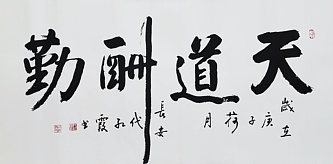 天道酬勤
歲在庚子荷月
長安代红霞书